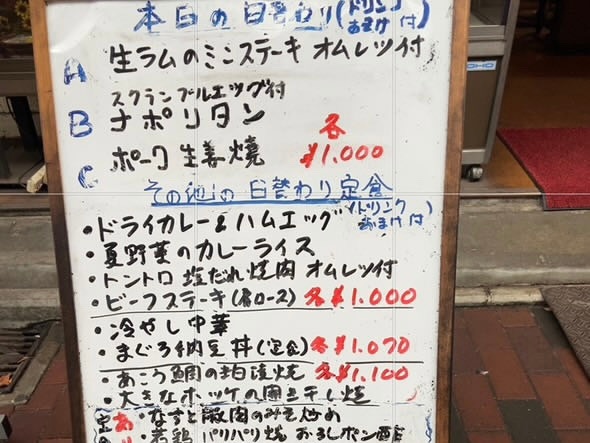 本日の日替わり(ドリンク おまけ 付)
A 生ラムのミニステーキ オムレツ付
スクランブルエッグ付
B ナポリタン
C ポーク生姜焼 各 ¥1.000
その他の日替わり定食
(ドリンク おまけ 付)
・ドライカレー&ハムエッグ
・夏野菜のカレーライス
・トントロ塩だれ焼肉 オムレツ付
・ビーフステーキ(肩ロース) 各¥1.000
・冷やし中華
・まぐろ納豆丼(定食) 各¥1.070
・あこう鯛の粕漬焼 各¥1.100
・大きなホッケの開き干し焼
・なすと豚肉のみそ炒め
・若鶏パリパリ焼 おろしポン酢